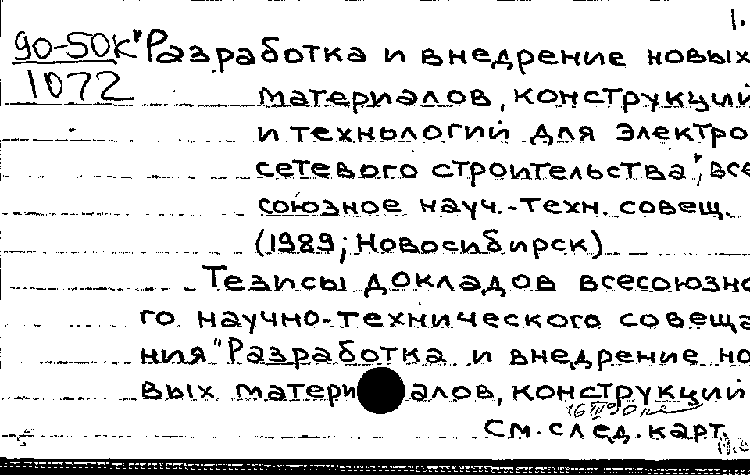 1.
90-50К "Разработка и внедрение новых
1072
материалов, конструкций
и технологий для электро
сетевого строительства", все
союзное науч.-техн. совещ.
(1989; Новосибирск)
Тезисы докладов всесоюзно
го научно-технического совеща
ния "Разработка и внедрение но
вых материалов, конструкций
См. след. карт.